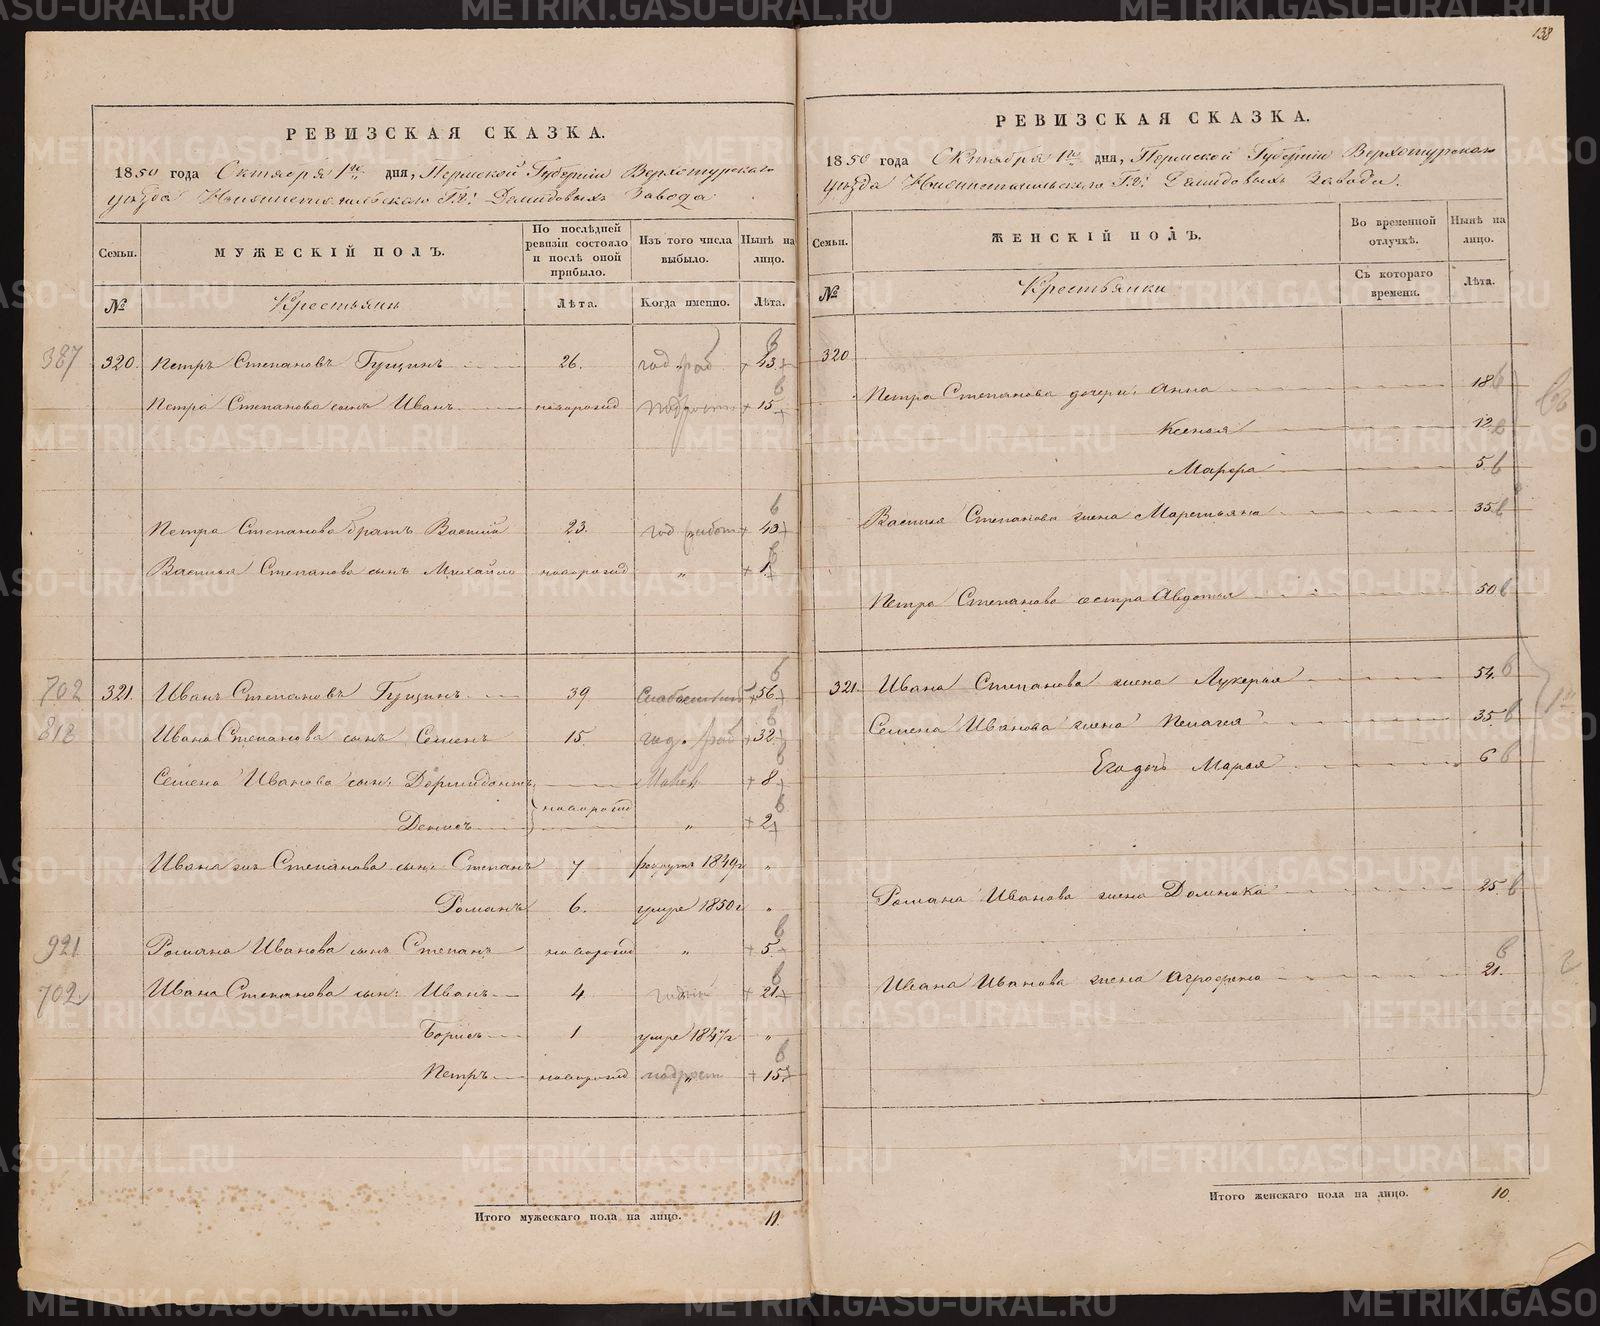 138
РЕВИЗСКАЯ СКАЗКА.
1850 года Октября 1го дня, Пермской Губернии Верхотурскаго
уѣзда Нижнетагильскаго Г.г. Демидовыхъ Завода
Семьи. МУЖЕСКІЙ ПОЛЪ. По послѣдней ревизіи состояло и послѣ оной прибыло. Изъ того числа выбыло. Нынѣ на лицо.
№ Крестьяне Лѣта. Когда именно. Лѣта.
387 320. Петръ Степановъ Гущинъ 26. год. раб 43
Петра Степанова сынъ Иванъ новорожд подрост 15
Петра Степанова братъ Василій 23. год работ 40
Василья Степанова сынъ Михайло новорожд „ 1
702 321. Иванъ Степановъ Гущинъ 39. 56
818 Ивана Степанова сынъ Семенъ 15. год. раб 32
Семена Иванова сын: Дормидонтъ 8
новорожд
Денисъ „ 2
Ивана же Степанова сын: Степанъ 7 рекрутъ 1849г „
Романъ 6. умре 1850г „
921 Романа Иванова сынъ Степанъ новорожд „ 5
702 Ивана Степанова сын: Иванъ 4 21
Борисъ 1 умре 1847г „
Петръ новорожд подрост 15
Итого мужескаго пола на лицо. 11.
РЕВИЗСКАЯ СКАЗКА.
1850 года Октября 1го дня, Пермской Губерніи Верхотурскаго
уѣзда Нижнетагильскаго Г.г. Демидовыхъ Завода.
Семьи. ЖЕНСКІЙ ПОЛЪ. Во временной отлучкѣ. Нынѣ на лицо.
№ Крестьянки Съ котораго времени. Лѣта.
320
Петра Степанова дочери: Анна 18
Ксенья 12
Марфа 5
Василья Степанова жена Маремьяна 35
Петра Степанова сестра Авдотья 50
321. Ивана Степанова жена Лукерья 54.
Семена Иванова жена Пелагея 35
Его дочь Марья 6
Романа Иванова жена Домника 25
Ивана Иванова жена Агрофена 21.
Итого женскаго пола на лицо. 10.
METRIKI.GASO-URAL.RU